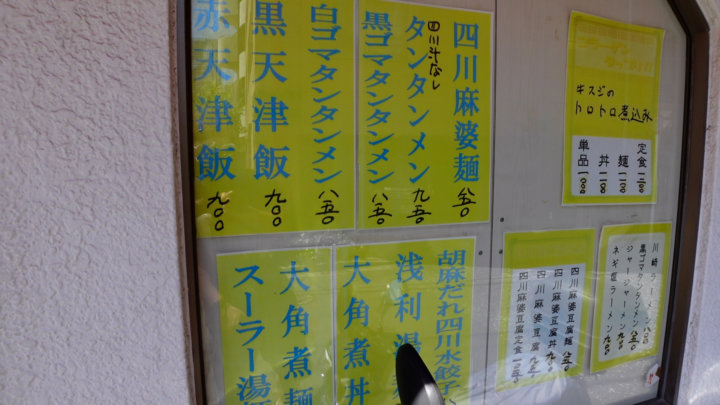 四川麻婆麺 八五〇
四川汁なし
タンタンメン 九五〇
黒ゴマタンタンメン 八五〇
白ゴマタンタンメン 八五〇
黒天津飯 九〇〇
赤天津飯 九〇〇
牛スジの
トロトロ煮込み
定食 一三〇〇
麺 一一〇〇
丼 一一〇〇
単品 一〇〇〇
胡麻だれ四川水餃子
浅利湯
大角煮丼
大角煮麺
スーラー湯
四川麻婆豆腐麺 八五〇
四川麻婆豆腐丼 九〇〇
四川麻婆豆腐 九五〇
四川麻婆豆腐定食 一〇五〇
川崎ラーメン 八〇〇
黒ゴマタンタンメン 八五〇
ジャージャーメン 九〇〇
ネギ塩ラーメン 九〇〇